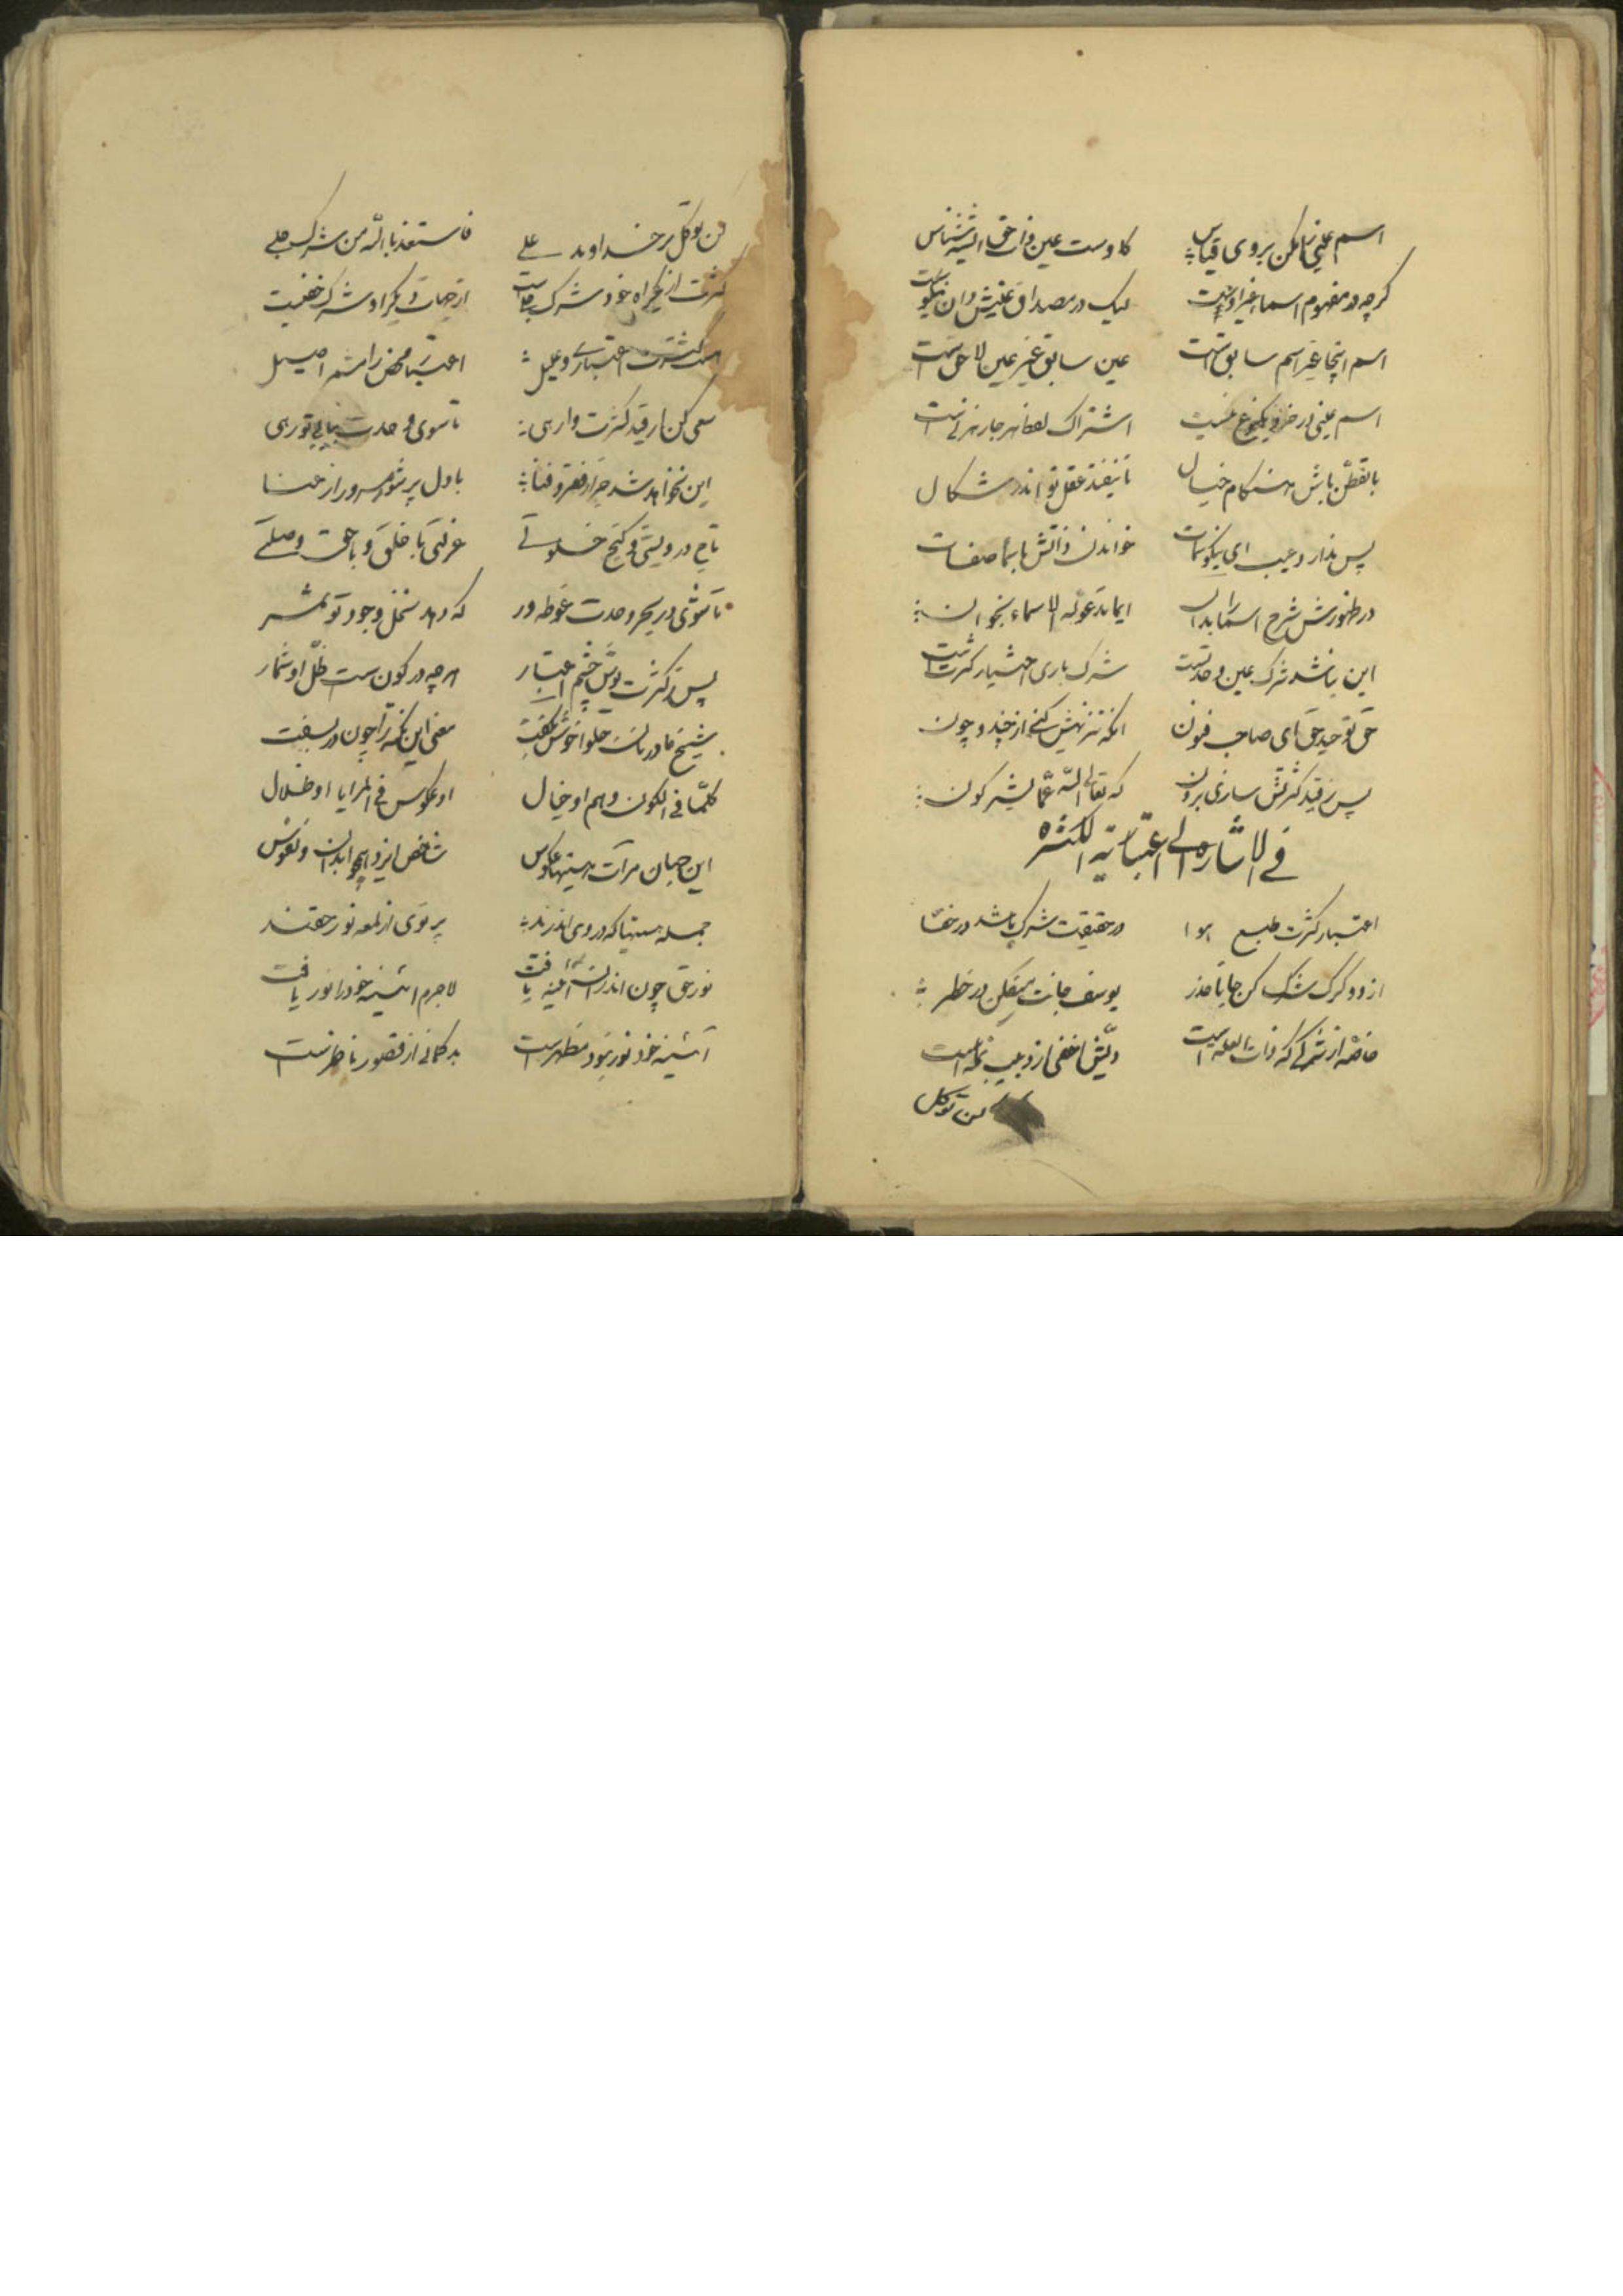 اسم عینی را مکن بروی قیاس کاوست عین ذات حق الیه شناس
کرچه در مفهوم اسما غیر اوست لیک در مصداق عینش دان نیکوست
اسم اینجا غیر اسم سابق است عین سابق غیر عین لاحق است
اسم عینی در خرد یکنوع نیست اشتراک لفظ هر جا رهزنیست
با تفطن باش هنکام خیال تا نیفتد عقل تو اندر شکال
پس ندارد عیب ای نیکو سمات خواندن ذاتش باسما صفات
در ظهورش شرح اسما را بدان ایما تدعو له الاسماء بخوان
این نباشد شرک عین وحدتست شرک باری اختیار کثرت است
حق توحید حق ای صاحب فنون انکه تنزیهش کنی از چند و چون
پس ز قید کثرتش سازی برون که تعالی الله عما یشرکون
فی الاشاره الی اعتباریة الکثره
اعتبار کثرت طبع هوا در حقیقت شرک باشد در خفا
از دو کرک شرک کن جانا حذر یوسف جانت میفکن در خطر
خاصه از شرکی که ذات العله است دیش اخفی از دبیب نمله است
من توکل
من توکل بر خداوند علی فاستعذ بالله من شرک جلی
کثرت از یکراه خود شرک جلیست از جهات دیکر او شرک خفیست
هست کثرت اعتباری و علیل اعتبار محض را مشمر اصیل
سعی کن از قید کثرت وارهی تا سوی وحدت بیابی تو رهی
این نخواهد شد جز از فقر و فنا با دل پر شور و سرور از عنا
تاج درویشی و کنج خلوتی عزلتی با خلق و با حق وصلتی
تا شوی در بحر وحدت غوطه ور که دهد نخل وجود تو ثمر
پس ز کثرت پوش چشم اعتبار هر چه در کون است ظل او شمار
شیخ ما در نان حلوا خوش بکفت معنی این نکته را چون در بسفت
کلما فی الکون وهم او خیال او عکوس فی المرایا او ظلال
این جهان مرآت هستیها عکوس شاخص ایزد همچو ابدان و نفوس
جمله هستیها که در وی اندرند پرتوی از لمعه نور حقند
نور حق چون اندران آئینه یافت لاجرم آئینه خود را نور یافت
آئینه خود نور نبود مظهر است بدکمانی از قصور ناظر است